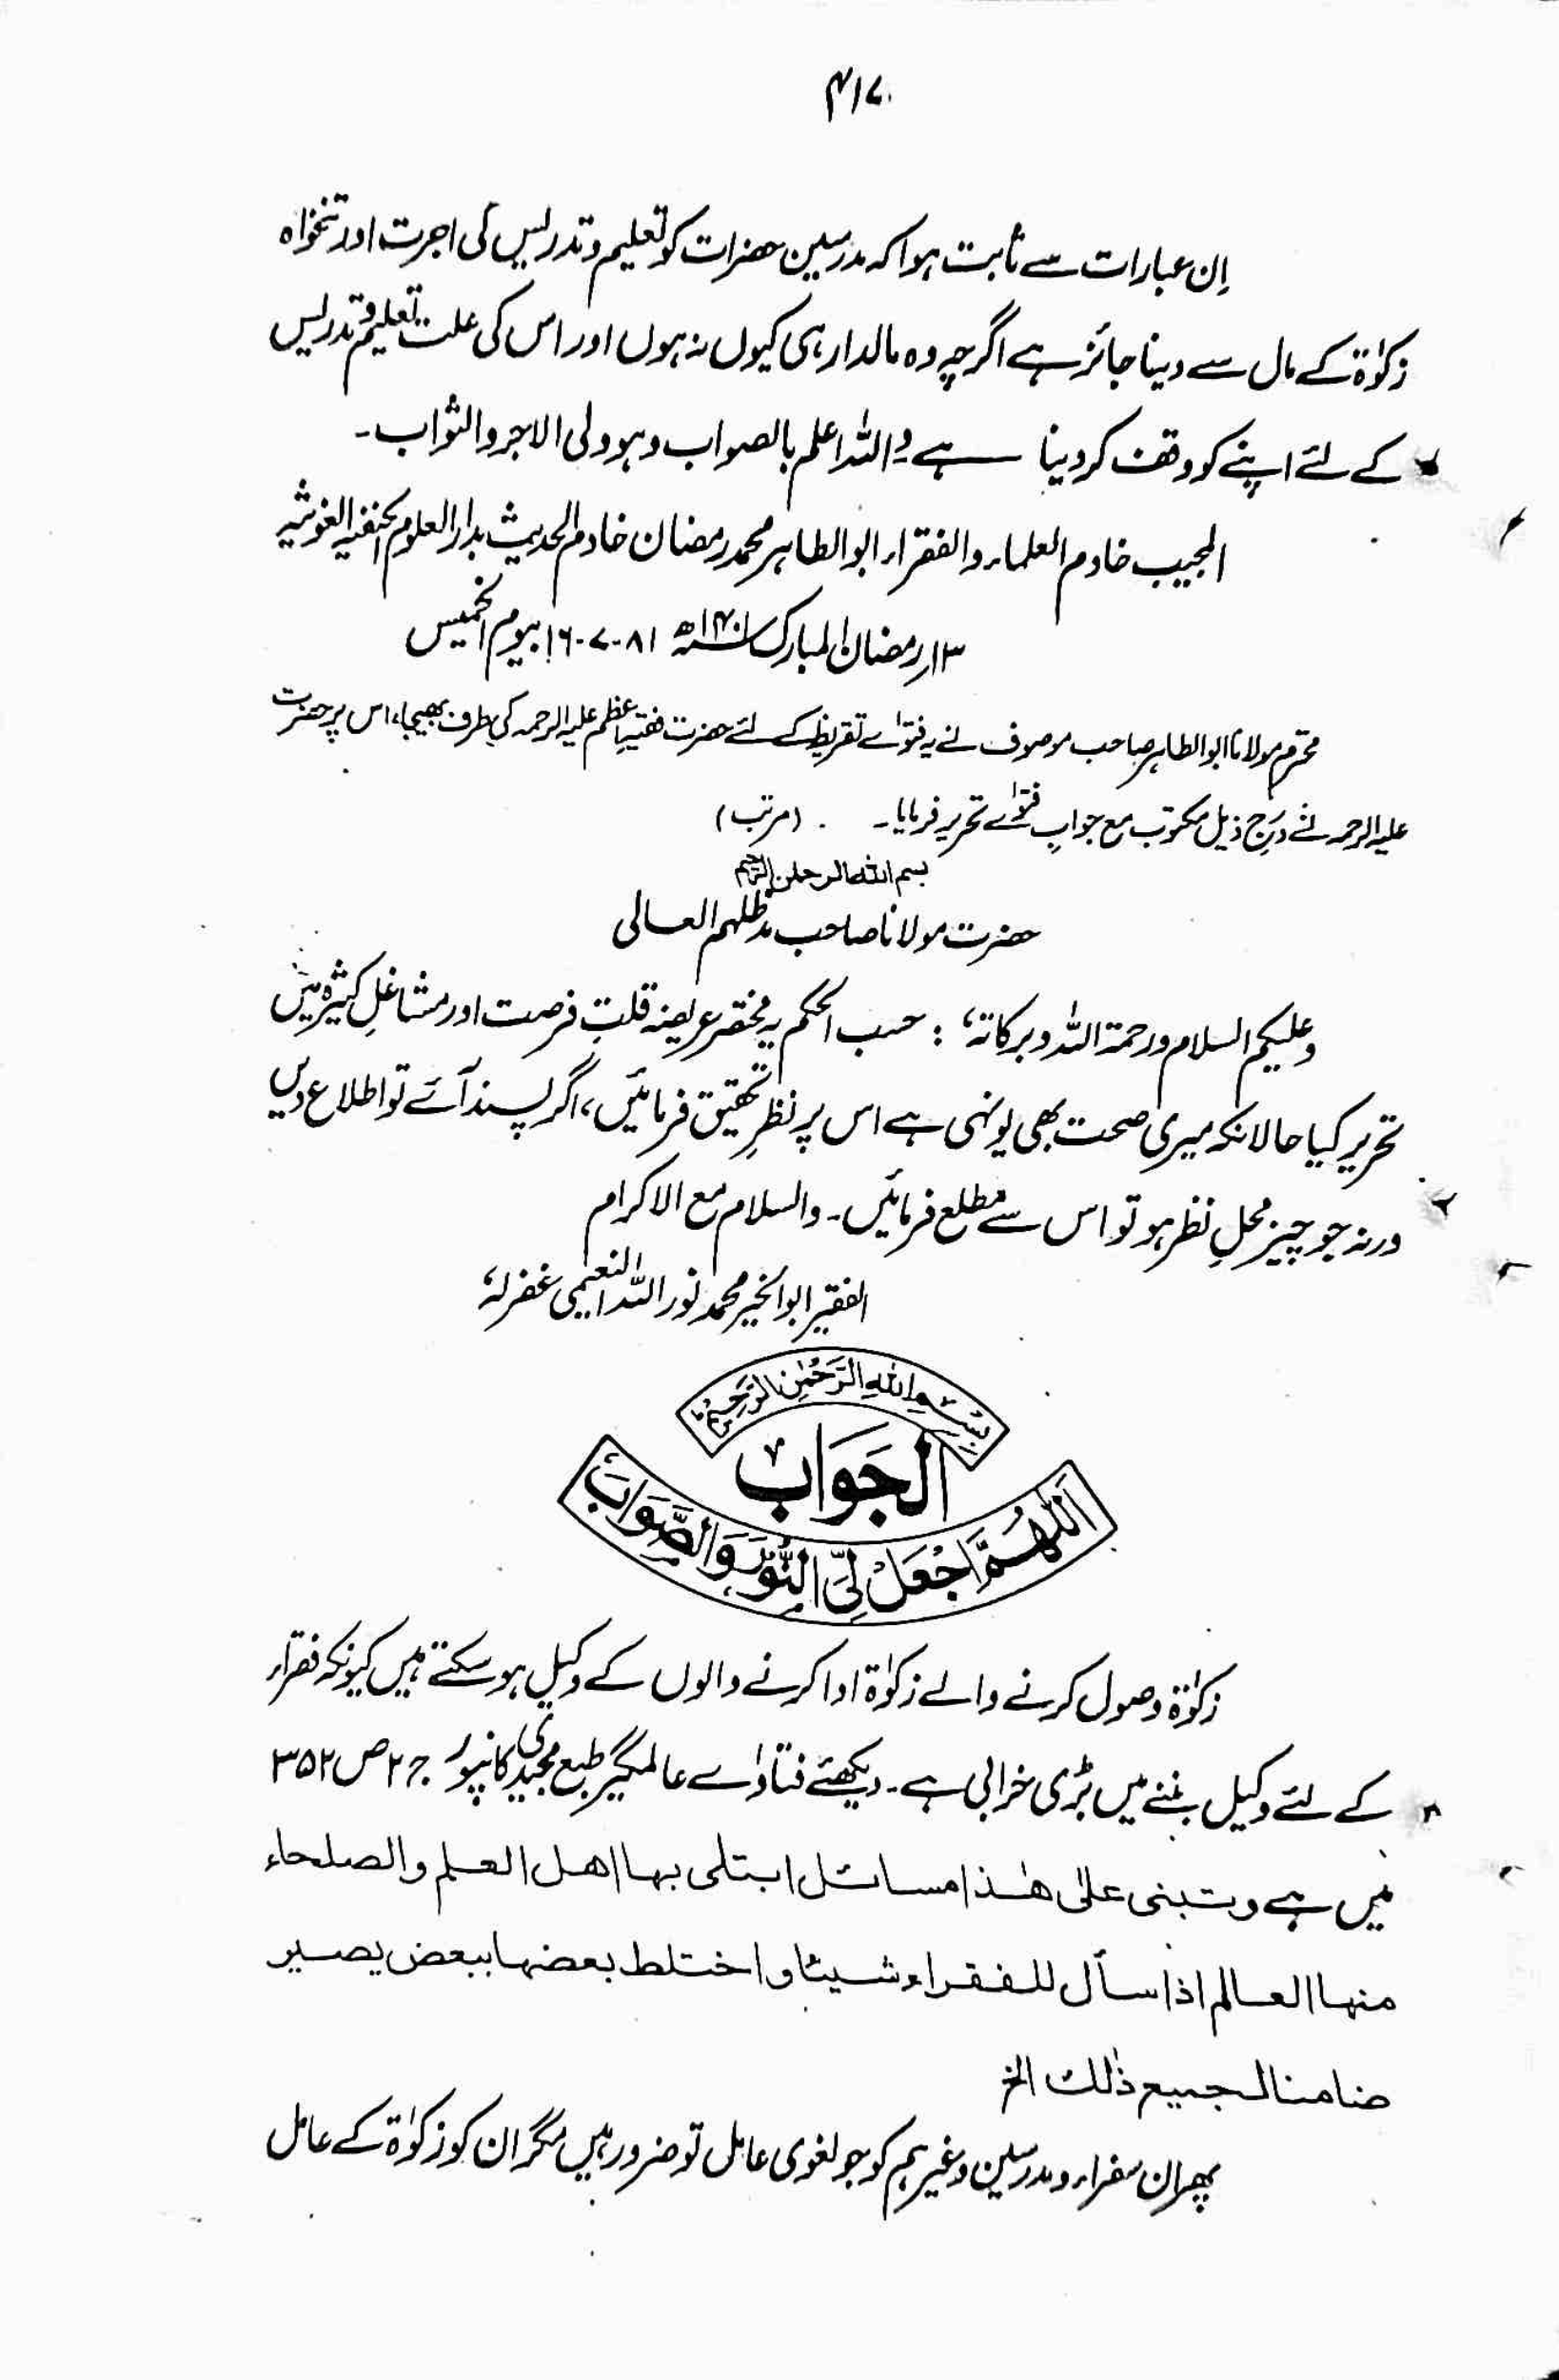 ۴۱۷
اِن عبارات سے ثابت ہوا کہ مدرسین حضرات کو تعلیم و تدریس کی اجرت اور تنخواہ
زکوٰۃ کے مال سے دینا جائز ہے اگرچہ وہ مالدار ہی کیوں نہ ہوں اور اس کی علت تعلیم و تدریس
کے لئے اپنے کو وقف کر دینا ہے واللہ اعلم بالصواب وہو ولی الاجر والثواب۔
المجیب خادم العلماء والفقراء ابوالطاہر محمد رمضان خادم الحدیث بدارالعلوم الحنفیہ الغوثیہ
۱۳؍رمضان المبارک سنہ ۱۴۰۱ھ ۸۱-۷-۱۶ بیوم الخمیس
محترم مولانا ابوالطاہر صاحب موصوف نے یہ فتوٰے تقریظ کے لئے حضرت فقیہ اعظم علیہ الرحمہ کی طرف بھیجا، اس پر حضرت
علیہ الرحمہ نے درج ذیل مکتوب مع جوابِ فتوٰے تحریر فرمایا۔ (مرتب)
بسم اللہ الرحمٰن الرحیم
حضرت مولانا صاحب مدظلہم العالی
وعلیکم السلام ورحمۃ اللہ وبرکاتہٗ : حسب الحکم یہ مختصر عریضہ قلتِ فرصت اور مشاغلِ کثیرہ میں
تحریر کیا حالانکہ میری صحت بھی یونہی ہے اس پر نظرِ تحقیق فرمائیں، اگر پسند آئے تو اطلاع دیں
ورنہ جو چیز محلِ نظر ہو تو اس سے مطلع فرمائیں۔ والسلام مع الاکرام
الفقیر ابوالخیر محمد نور اللہ النعیمی غفرلہٗ
بِسْمِ اللهِ الرَّحْمٰنِ الرَّحِيْمِ
الجَوَابُ
اَللّٰهُمَّ اجْعَلْ لِيَ النُّوْرَ وَالصَّوَابَ
زکوٰۃ وصول کرنے والے زکوٰۃ ادا کرنے والوں کے وکیل ہو سکتے ہیں کیونکہ فقراء
کے لئے وکیل بننے میں بڑی خرابی ہے۔ دیکھئے فتاوٰے عالمگیر طبع مجیدی کانپور ج ۲ ص ۳۵۲
میں ہے وتبنی علیٰ ھٰذا مسائل ابتلی بھا اھل العلم والصلحاء
منھا العالم اذا سأل للفقراء شیئا واختلط بعضھا ببعض یصیر
ضامنا لجمیع ذٰلک الخ
پھر ان سفراء و مدرسین وغیرہم کو جو لغوی عامل تو ضرور ہیں مگر ان کو زکوٰۃ کے عامل